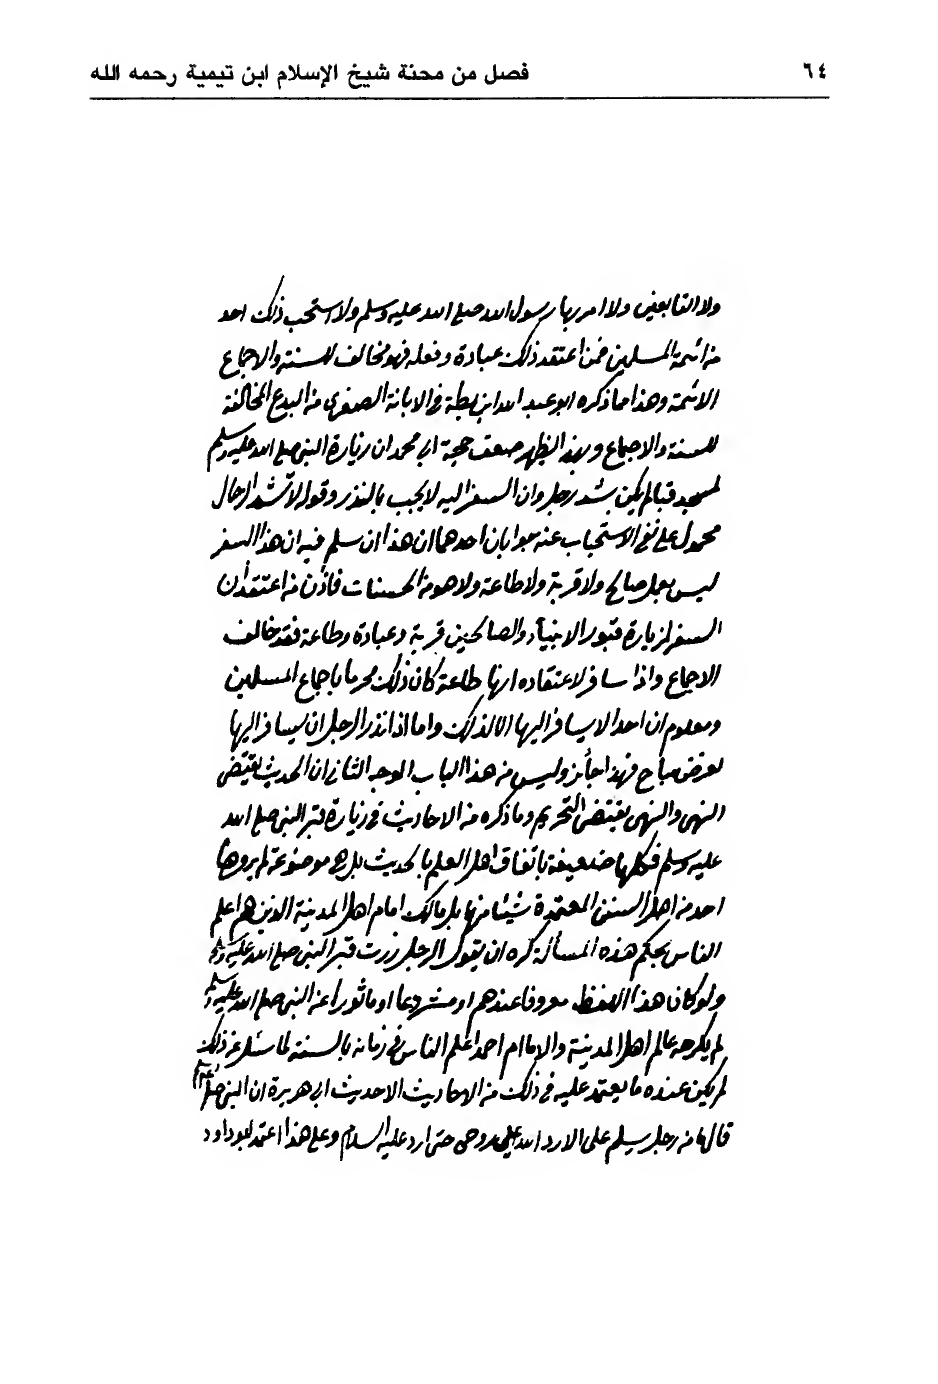 ٦٤ فصل من محنة شيخ الإسلام ابن تيمية رحمه الله
ولا التابعين ولا امر بها رسول الله صلى الله عليه وسلم ولا استحب ذلك احد
من ائمة المسلمين فمن اعتقد ذلك عبادة وفعله فهو مخالف للسنة والاجماع
الائمة وهذا ما ذكره ابو عبد الله ابن بطة في الابانة الصغرى من البدع المخالفة
للسنة والاجماع وبهذا يظهر ضعف حجة ابي محمد ان زيارة النبي صلى الله عليه وسلم
لمسجد قبا لم يكن بشد رحل وان السفر اليه لا يجب بالنذر وقوله لا تشد الرحال
محمول على نفي الاستحباب عنه جوابان احدهما ان هذا ان سلم فيه ان هذا السفر
ليس بعمل صالح ولا قربة ولا طاعة ولا هو من الحسنات فاذن من اعتقد أن
السفر لزيارة قبور الانبيآء والصالحين قربة وعبادة وطاعة فقد خالف
الاجماع واذا سافر لاعتقاده انها طاعة كان ذلك محرما باجماع المسلمين
ومعلوم ان احدا لا يسافر اليها الا لذلك واما اذا نذر الرجل ان يسافر اليها
لغرض مباح فهذا جائز وليس من هذا الباب الوجه الثاني ان الحديث يقتضي
النهي والنهي يقتضي التحريم وما ذكره من الاحاديث في زيارة قبر النبي صلى الله
عليه وسلم فكلها ضعيفة باتفاق اهل العلم بالحديث بل هي موضوعة لم يروها
احد من اهل السنن المعتمدة شيئا منها بل مالك امام اهل المدينة الذين هم اعلم
الناس بحكم هذه المسألة كره ان يقول الرجل زرت قبر النبي صلى الله عليه وسلم
ولو كان هذا اللفظ معروفا عندهم او مشروعا او ماثورا عن النبي صلى الله عليه وسلم
لم يكرهه عالم اهل المدينة والامام احمد اعلم الناس في زمانه بالسنة لما سئل عن ذلك
لم يكن عنده ما يعتمد عليه في ذلك من الاحاديث الا حديث ابي هريرة ان النبي صلى
قال ما من رجل يسلم علي الا رد الله علي روحي حتى ارد عليه السلام وعلى هذا اعتمد ابو داود